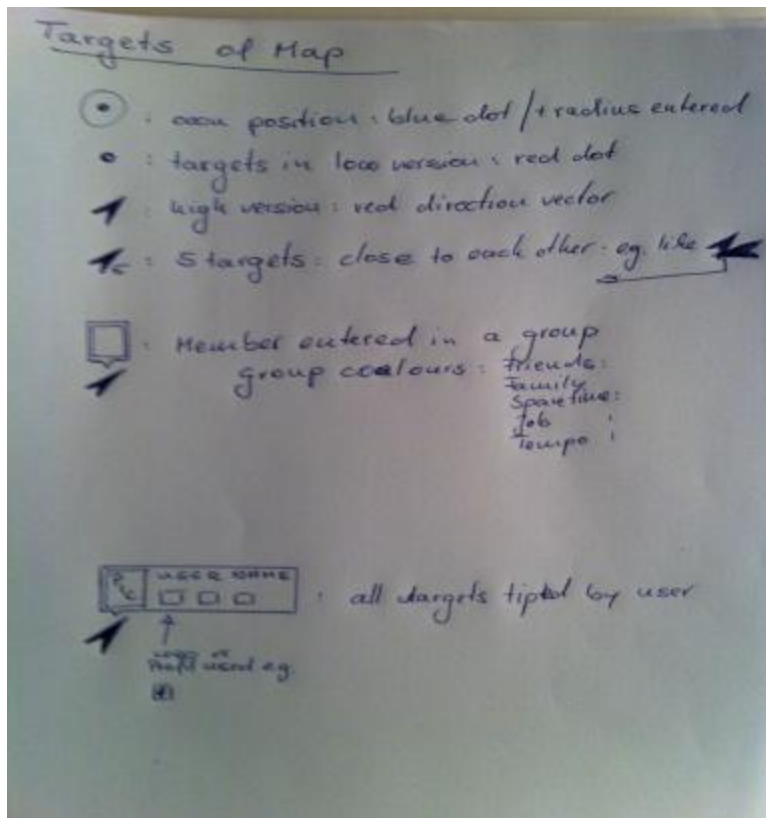 Targets of Map
: own position : blue dot / + radius entered
: targets in low version : red dot
: high version : red direction vector
: 5 targets : close to each other . eg. like
: Member entered in a group
group colours : Friends :
Family
Sparetime :
Job :
Tempo :
USER NAME
: all targets tipted by user
used e.g.